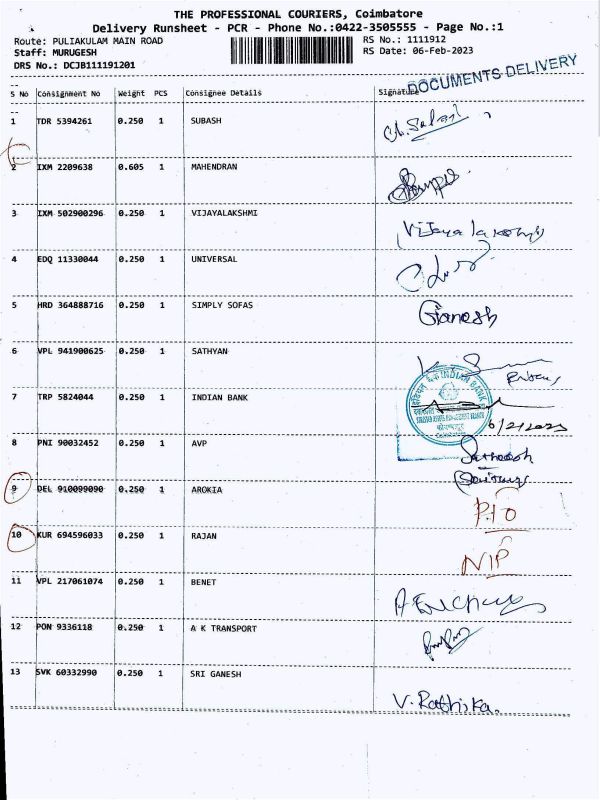 THE PROFESSIONAL COURIERS, Coimbatore
Delivery Runsheet - PCR - Phone No.:0422-3505555 - Page No.:1
Route: PULIAKULAM MAIN ROAD
RS No.: 1111912
Staff: MURUGESH
RS Date: 06-Feb-2023
DRS No.: DCJB111191201
DOCUMENTS DELIVERY
S No Consignment No Weight PCS Consignee Details Signature
1 TDR 5394261 0.250 1 SUBASH
2 IXM 2209638 0.605 1 MAHENDRAN
3 IXM 502900296 0.250 1 VIJAYALAKSHMI
Vijayalakshmi
4 EDQ 11330044 0.250 1 UNIVERSAL
5 HRD 364888716 0.250 1 SIMPLY SOFAS
Ganesh
6 VPL 941900625 0.250 1 SATHYAN
7 TRP 5824044 0.250 1 INDIAN BANK
INDIAN BANK
6/2/2023
8 PNI 90032452 0.250 1 AVP
9 DEL 910099090 0.250 1 AROKIA
P.I.O
10 KUR 694596033 0.250 1 RAJAN
NIP
11 VPL 217061074 0.250 1 BENET
12 PON 9336118 0.250 1 A K TRANSPORT
13 SVK 60332990 0.250 1 SRI GANESH
V. Rathika.